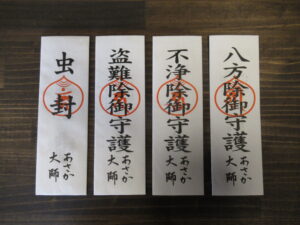 八方除御守護
あさか
大師
不浄除御守護
あさか
大師
盗難除御守護
あさか
大師
虫封
あさか
大師